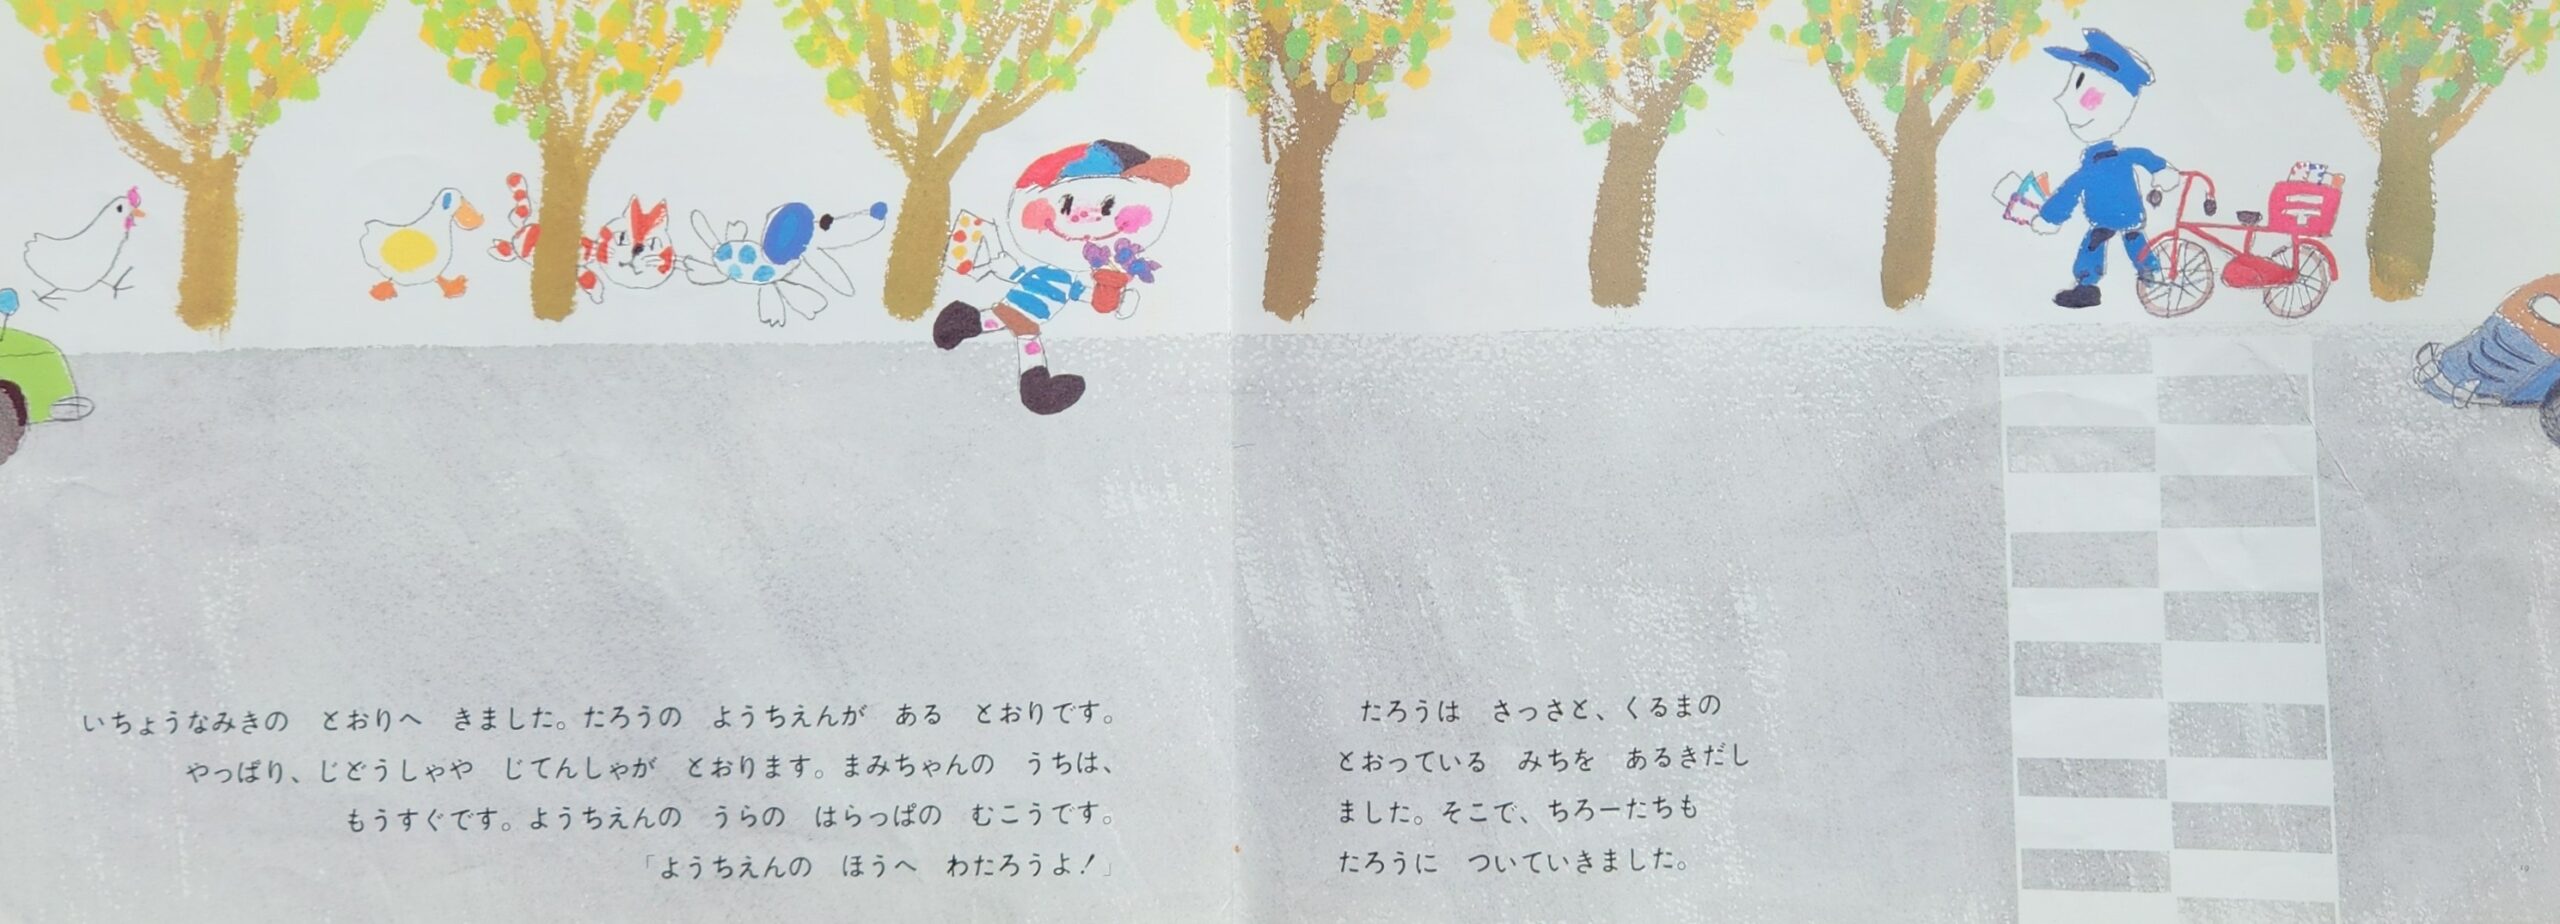 いちょうなみきの　とおりへ　きました。たろうの　ようちえんが　ある　とおりです。
やっぱり、じどうしゃや　じてんしゃが　とおります。まみちゃんの　うちは、
もうすぐです。ようちえんの　うらの　はらっぱの　むこうです。
「ようちえんの　ほうへ　わたろうよ！」
たろうは　さっさと、くるまの
とおっている　みちを　あるきだし
ました。そこで、ちろーたちも
たろうに　ついていきました。